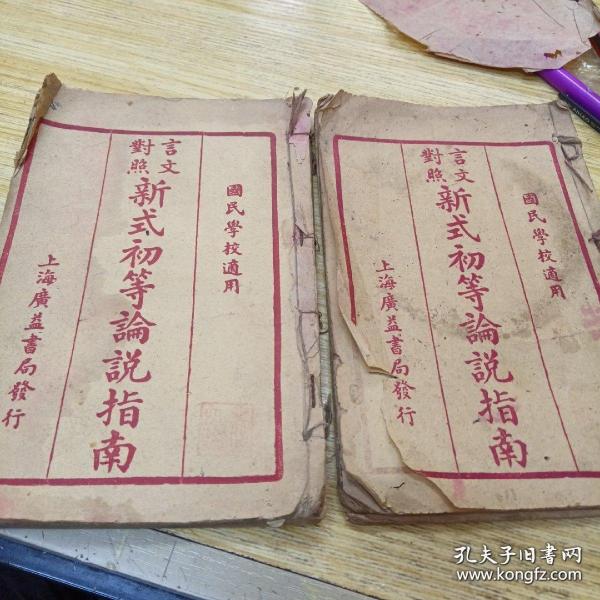 國民學校適用
言文對照
新式初等論說指南
上海廣益書局發行
國民學校適用
言文對照
新式初等論說指南
上海廣益書局發行
孔夫子旧书网
www.kongfz.com